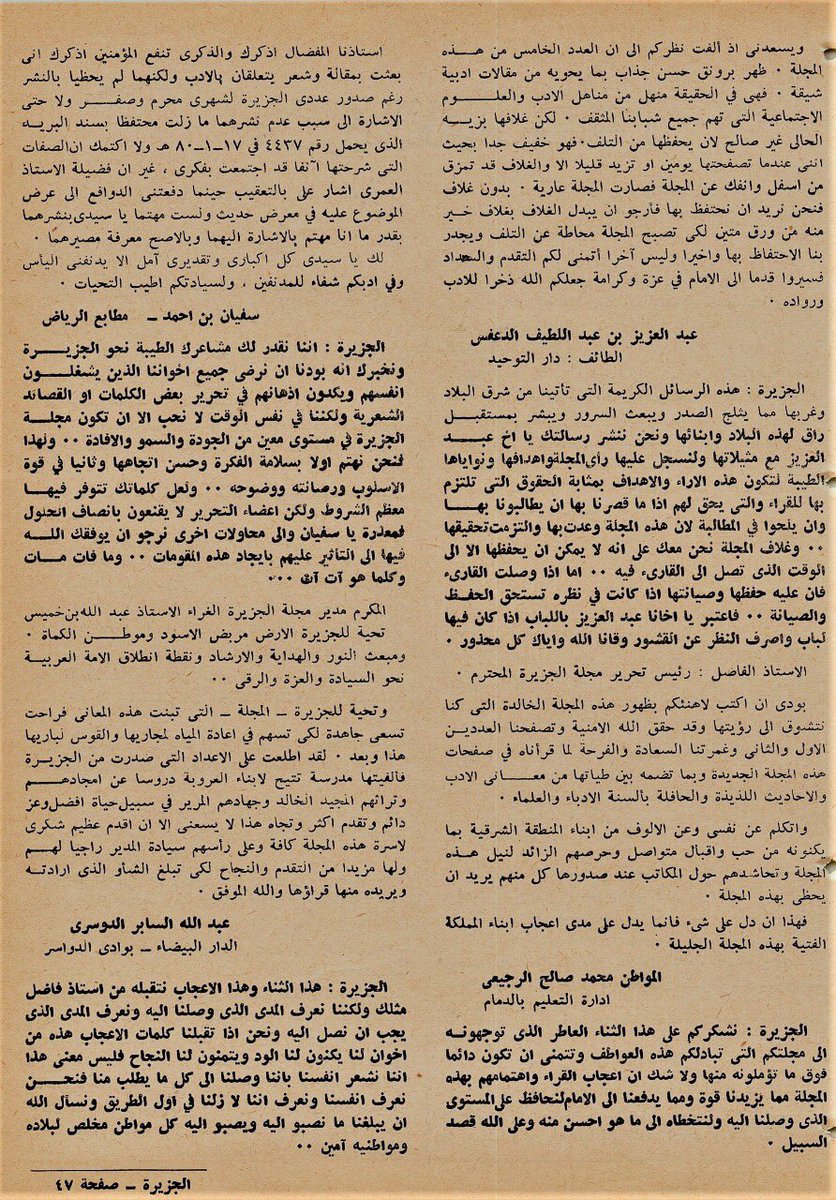 ويسعدنى اذ ألفت نظركم الى ان العدد الخامس من هـــذه
المجلة ٠ ظهر برونق حسن جذاب بما يحويه من مقالات ادبية
شيقة ٠ فهى في الحقيقة منهل من مناهل الادب والعلـــوم
الاجتماعية التى تهم جميع شبابنا المثقف ٠ لكن غلافها بزيـــه
الحالى غير صالح لان يحفظها من التلف٠ فهو خفيف جدا بحيث
اننى عندما تصفحتها يومين او تزيد قليلا الا والغلاف قد تمزق
من اسفل وانفك عن المجلة فصارت المجلة عارية ٠ بدون غلاف
فنحن نريد ان نحتفظ بها فأرجو ان يبدل الغلاف بغلاف خـــير
منه من ورق متين لكى تصبح المجلة محاطة عن التلف ويجدر
بنا الاحتفاظ بها واخيرا وليس آخرا أتمنى لكم التقدم والسداد
فسيروا قدما الى الامام في عزة وكرامة جعلكم الله ذخرا للادب
ورواده ٠
عبد العزيز بن عبد اللطيف الدعفس
الطائف : دار التوحيد
الجزيرة : هذه الرسائل الكريمة التى تأتينا من شرق البلاد
وغربها مما يثلج الصدر ويبعث السرور ويبشر بمستقبـــل
راق لهذه البلاد وابنائها ونحن ننشر رسالتك يا اخ عبـــد
العزيز مع مثيلاتها ولنسجل عليها رأى المجلة واهدافها ونواياها
الطيبة لتكون هذه الاراء والاهداف بمثابة الحقوق التى تلتزم
بها للقراء والتى يحق لهم اذا ما قصرنا بها ان يطالبونا بهـــا
وان يلحوا في المطالبة لان هذه المجلة وعدت بها والتزمت تحقيقها
٠٠ وغلاف المجلة نحن معك على انه لا يمكن ان يحفظها الا الى
الوقت الذى تصل الى القارىء فيه ٠٠ اما اذا وصلت القارىء
فان عليه حفظها وصيانتها اذا كانت في نظره تستحق الحفـــظ
والصيانة ٠٠ فاعتبر يا اخانا عبد العزيز باللباب اذا كان فيها
لباب واصرف النظر عن القشور وقانا الله واياك كل محذور ٠
الاستاذ الفاضل : رئيس تحرير مجلة الجزيرة المحترم ٠
بودى ان اكتب لاهنئكم بظهور هذه المجلة الخالدة التى كنا
نتشوق الى رؤيتها وقد حقق الله الامنية وتصفحنا العدديـــن
الاول والثانى وغمرتنا السعادة والفرحة لما قرأناه في صفحات
هذه المجلة الجديدة وبما تضمه بين طياتها من معـــانى الادب
والاحاديث اللذيذة والحافلة بألسنة الادباء والعلماء ٠
واتكلم عن نفسى وعن الالوف من ابناء المنطقة الشرقية بما
يكنونه من حب واقبال متواصل وحرصهم الزائد لنيل هـــذه
المجلة وتحاشدهم حول المكاتب عند صدورها كل منهم يريد ان
يحظى بهذه المجلة ٠
فهذا ان دل على شىء فانما يدل على مدى اعجاب ابناء المملكة
الفتية بهذه المجلة الجليلة ٠
المواطن محمد صالح الرجيعى
ادارة التعليم بالدمام
الجزيرة : نشكركم على هذا الثناء العاطر الذى توجهونـــه
الى مجلتكم التى تبادلكم هذه العواطف وتتمنى ان تكون دائما
فوق ما تؤملونه منها ولا شك ان اعجاب القراء واهتمامهم بهذه
المجلة مما يزيدنا قوة ومما يدفعنا الى الامام لنحافظ على المستوى
الذى وصلنا اليه ولنتخطاه الى ما هو احسن منه وعلى الله قصد
السبيل ٠
استاذنا المفضال اذكرك والذكرى تنفع المؤمنين اذكرك انى
بعثت بمقالة وشعر يتعلقان بالادب ولكنهما لم يحظيا بالنشر
رغم صدور عددى الجزيرة لشهرى محرم وصفـــر ولا حتى
الاشارة الى سبب عدم نشرهما ما زلت محتفظا بسند البريـد
الذى يحمل رقم ٤٤٣٧ في ١٧-١-٨٠ هـ ولا اكتمك ان الصفات
التى شرحتها آنفا قد اجتمعت بفكرى ، غير ان فضيلة الاستاذ
العمرى اشار على بالتعقيب حينما دفعتنى الدوافع الى عرض
الموضوع عليه في معرض حديث ولست مهتما يا سيدى بنشرهما
بقدر ما انا مهتم بالاشارة اليهما وبالاصح معرفة مصيرهما ٠
لك يا سيدى كل اكبارى وتقديرى آمل الا يدنفنى اليأس
وفي ادبكم شفاء للمدنفين ، ولسيادتكم اطيب التحيات ٠
سفيان بن احمد ــ مطابع الرياض
الجزيرة : اننا نقدر لك مشاعرك الطيبة نحو الجزيـــرة
ونخبرك انه بودنا ان نرضى جميع اخواننا الذين يشغلـــون
انفسهم ويكدون اذهانهم في تحرير بعض الكلمات او القصائد
الشعرية ولكننا في نفس الوقت لا نحب الا ان تكون مجلـــة
الجزيرة في مستوى معين من الجودة والسمو والافادة ٠٠ ولهذا
فنحن نهتم اولا بسلامة الفكرة وحسن اتجاهها وثانيا في قوة
الاسلوب ورصانته ووضوحه ٠٠ ولعل كلماتك تتوفر فيهـــا
معظم الشروط ولكن اعضاء التحرير لا يقنعون بانصاف الحلول
فمعذرة يا سفيان والى محاولات اخرى نرجو ان يوفقك اللـــه
فيها الى التأثير عليهم بايجاد هذه المقومات ٠٠ وما فات مـات
وكلما هو آت آت ٠٠٠
المكرم مدير مجلة الجزيرة الغراء الاستاذ عبد الله بن خميس
تحية للجزيرة الارض مربض الاسود وموطـــن الكماة ٠
ومبعث النور والهداية والارشاد ونقطة انطلاق الامة العربية
نحو السيادة والعزة والرقى ٠٠
وتحية للجزيرة ــ المجلة ــ التى تبنت هذه المعانى فراحت
تسعى جاهدة لكى تسهم في اعادة المياه لمجاريها والقوس لباريها
هذا وبعد ٠ لقد اطلعت على الاعداد التى صدرت من الجزيـــرة
فالفيتها مدرسة تتيح لابناء العروبة دروسا عن امجادهـــم
وتراثهم المجيد الخالد وجهادهم المرير في سبيل حياة افضل وعز
دائم وتقدم اكثر وتجاه هذا لا يسعنى الا ان اقدم عظيم شكرى
لاسرة هذه المجلة كافة وعلى رأسهم سيادة المدير راجيا لهـــم
ولها مزيدا من التقدم والنجاح لكى تبلغ الشأو الذى ارادتـه
ويريده منها قراؤها والله الموفق ٠
عبد الله السابر الدوسرى
الدار البيضاء ــ بوادى الدواسر
الجزيرة : هذا الثناء وهذا الاعجاب نتقبله من استاذ فاضل
مثلك ولكننا نعرف المدى الذى وصلنا اليه ونعرف المدى الذى
يجب ان نصل اليه ونحن اذا تقبلنا كلمات الاعجاب هذه من
اخوان لنا يكنون لنا الود ويتمنون لنا النجاح فليس معنى هذا
اننا نشعر انفسنا باننا وصلنا الى كل ما يطلب منا فنحـــن
نعرف انفسنا ونعرف اننا لا زلنا في اول الطريق ونسأل الله
ان يبلغنا ما نصبو اليه ويصبو اليه كل مواطن مخلص لبلاده
ومواطنيه آمين ٠٠
الجزيرة ــ صفحة ٤٧